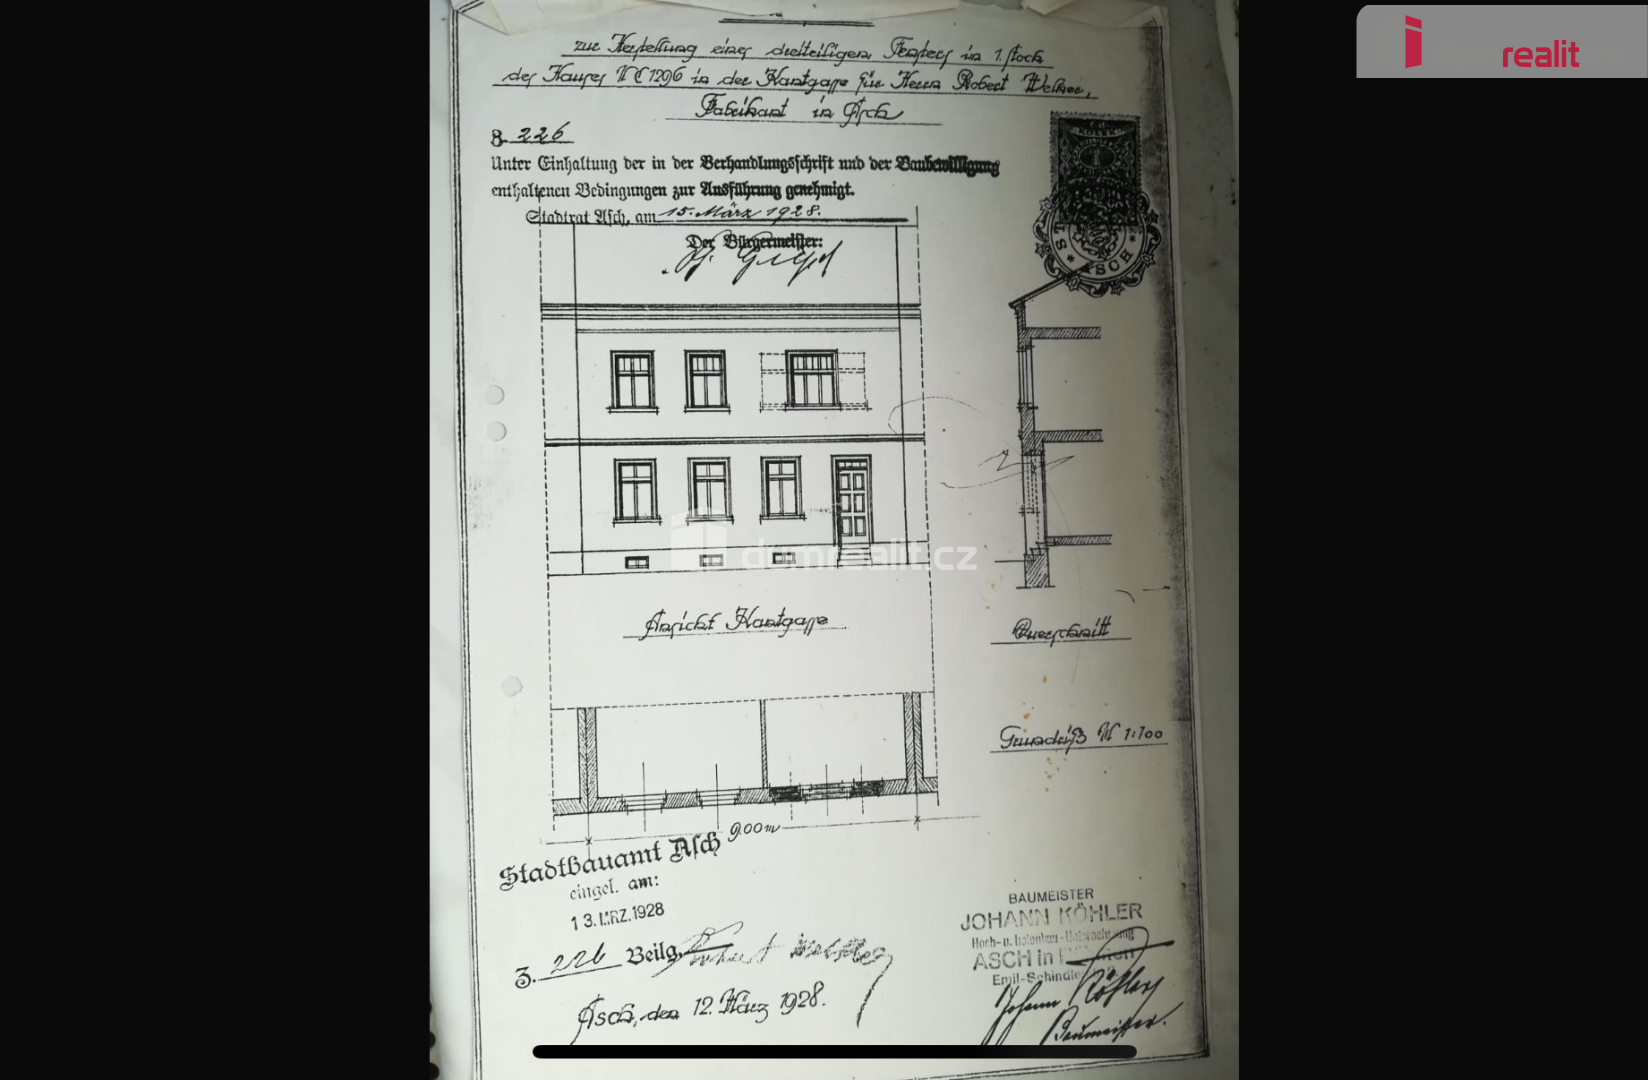 realit
zur Herstellung eines dreiteiligen Fensters im 1. Stock
des Hauses N C 1296 in der Hartgasse für Herrn Robert
Fabrikant in Asch
3. 226
Unter Einhaltung der in der Verhandlungsschrift und der Baubewilligung
enthaltenen Bedingungen zur Ausführung genehmigt.
Stadtrat Asch, am 15. März 1928.
Der Bürgermeister:
KOLEK
1
ASCH
domrealit.cz
Ansicht Hartgasse
Querschnitt
Grundriß M 1:100
9.00 m
Stadtbauamt Asch
eingel. am:
13. MRZ. 1928
Z. 226 Beilg.
Asch, den 12. März 1928.
BAUMEISTER
JOHANN KÖHLER
Hoch- u. Betonbau-Unternehmung
ASCH in
Emil-Schindler
Johann Köhler
Baumeister.